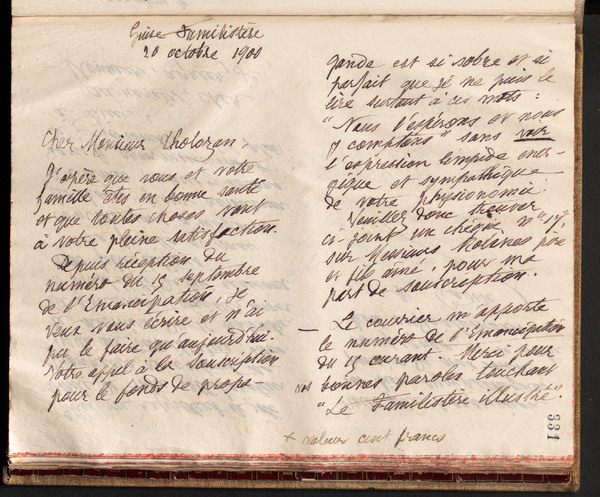 Guise Familistère
20 octobre 1900
Cher Monsieur Tholozan,
J'espère que vous et votre
famille êtes en bonne santé
et que toutes choses vont
à votre pleine satisfaction.
Depuis réception du
numéro du 15 septembre
de l'Emancipation, je
veux vous écrire et n'ai
pu le faire qu'aujourd'hui.
Votre appel à la Souscription
pour le fonds de propa-
gande est si sobre et si
parfait que je ne puis le
lire surtout à ces mots :
"Nous l'espérons et nous
y comptons" sans voir
l'expression limpide éner-
gique et sympathique
de votre physionomie.
Veuillez donc trouver
ci-joint un chèque, N°
sur Messieurs père
et fils ainé, pour ma
part de souscription.
— Le courrier m'apporte
le numéro de l'Emancipation
du 15 courant. Merci pour
vos bonnes paroles touchant
"Le Familistère illustré".
331
x valeur cent francs